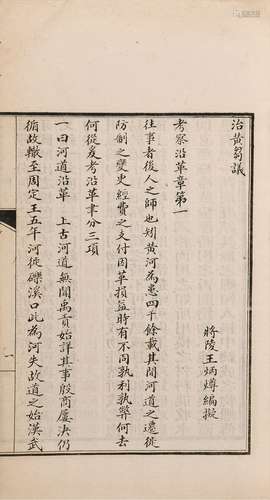 治黃芻議
將陵王炳燇編擬
考察沿革章第一
往事者後人之師也矧黃河為患四千餘載其間河道之遷徙
防制之變更經費之支付因革損益時有不同孰利孰弊何去
何從爰考沿革聿分三項
一曰河道沿革 上古河道無聞禹貢始詳其事殷商屢決仍
循故轍至周定王五年河徙礫溪口此為河失故道之始漢武
一